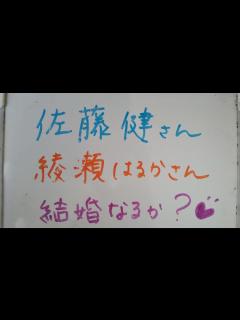 佐藤健さん
綾瀬はるかさん
結婚なるか?